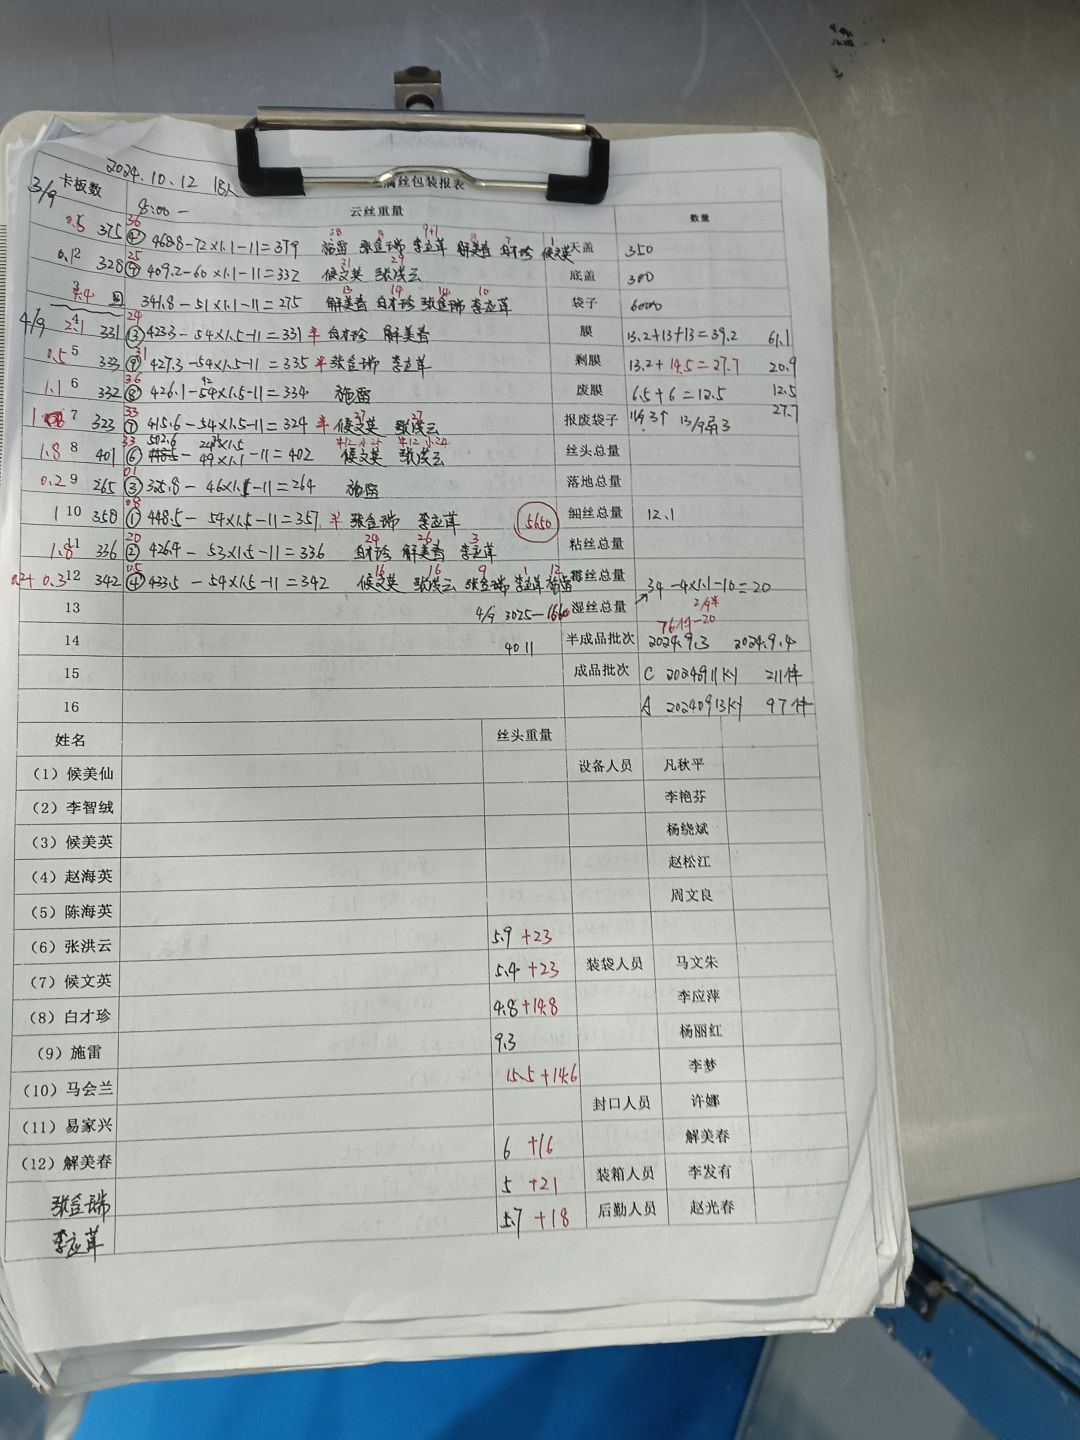 2024.10.12 18人
3/9 卡板数 丝包装报表
8:00 - 云丝重量 数量
0.5 375 36 468.8-72×1.1-11=379 施雷 张金瑞 李应萍 解美春 白才珍 侯文英 天盖 350
0.1 2 328 25 409.2-60×1.1-11=332 31 29 侯文英 张洪云 底盖 300
3 341.8-51×1.1-11=275 13 14 14 10 解美春 白才珍 张金瑞 李应萍 袋子 6000
4/9 2.1 4 331 24 ③ 423.3-54×1.5-11=331 半 白才珍 解美春 膜 13.2+13+13=39.2 61.1
0.5 5 333 31 ⑨ 427.3-54×1.5-11=335 半 张金瑞 李应萍 剩膜 13.2+14.5=27.7 20.9
1.1 6 332 36 ⑧ 426.1-54×1.5-11=334 施雷 废膜 6.5+6=12.5 12.5
1 7 323 33 ⑦ 415.6-54×1.5-11=324 半 27 27 侯文英 张洪云 报废袋子 27.7
1.8 8 401 33 ⑥ 502.6 49×1.1-11=402 侯文英 张洪云 丝头总量
0.2 9 265 01 ③ 325.8-46×1.1-11=264 施雷 落地总量
1 10 358 08 ① 448.5-54×1.5-11=357 半 张金瑞 李应萍 5650 细丝总量 12.1
1.8 11 336 20 ② 426.4-53×1.5-11=336 24 26 3 白才珍 解美春 李应萍 粘丝总量
0.2+0.3 12 342 05 ④ 433.5-54×1.5-11=342 16 16 9 1 12 侯文英 张洪云 张金瑞 李应萍 施雷 霉丝总量 34-4×1.1-10=20
13 4/9 3025-1660 湿丝总量 76件-20
14 4011 半成品批次 2024.9.3 2024.9.4
15 成品批次 C 20240911KY 211件
16 A 20240913KY 97件
姓名 丝头重量
（1）候美仙 设备人员 凡秋平
（2）李智绒 李艳芬
（3）候美英 杨绕斌
（4）赵海英 赵松江
（5）陈海英 周文良
（6）张洪云 5.9+23
（7）候文英 5.4+23 装袋人员 马文朱
（8）白才珍 4.8+14.8 李应萍
（9）施雷 9.3 杨丽红
（10）马会兰 15.5+14.6 李梦
（11）易家兴 封口人员 许娜
（12）解美春 6+16 解美春
张金瑞 5+21 装箱人员 李发有
李应萍 5.7+18 后勤人员 赵光春